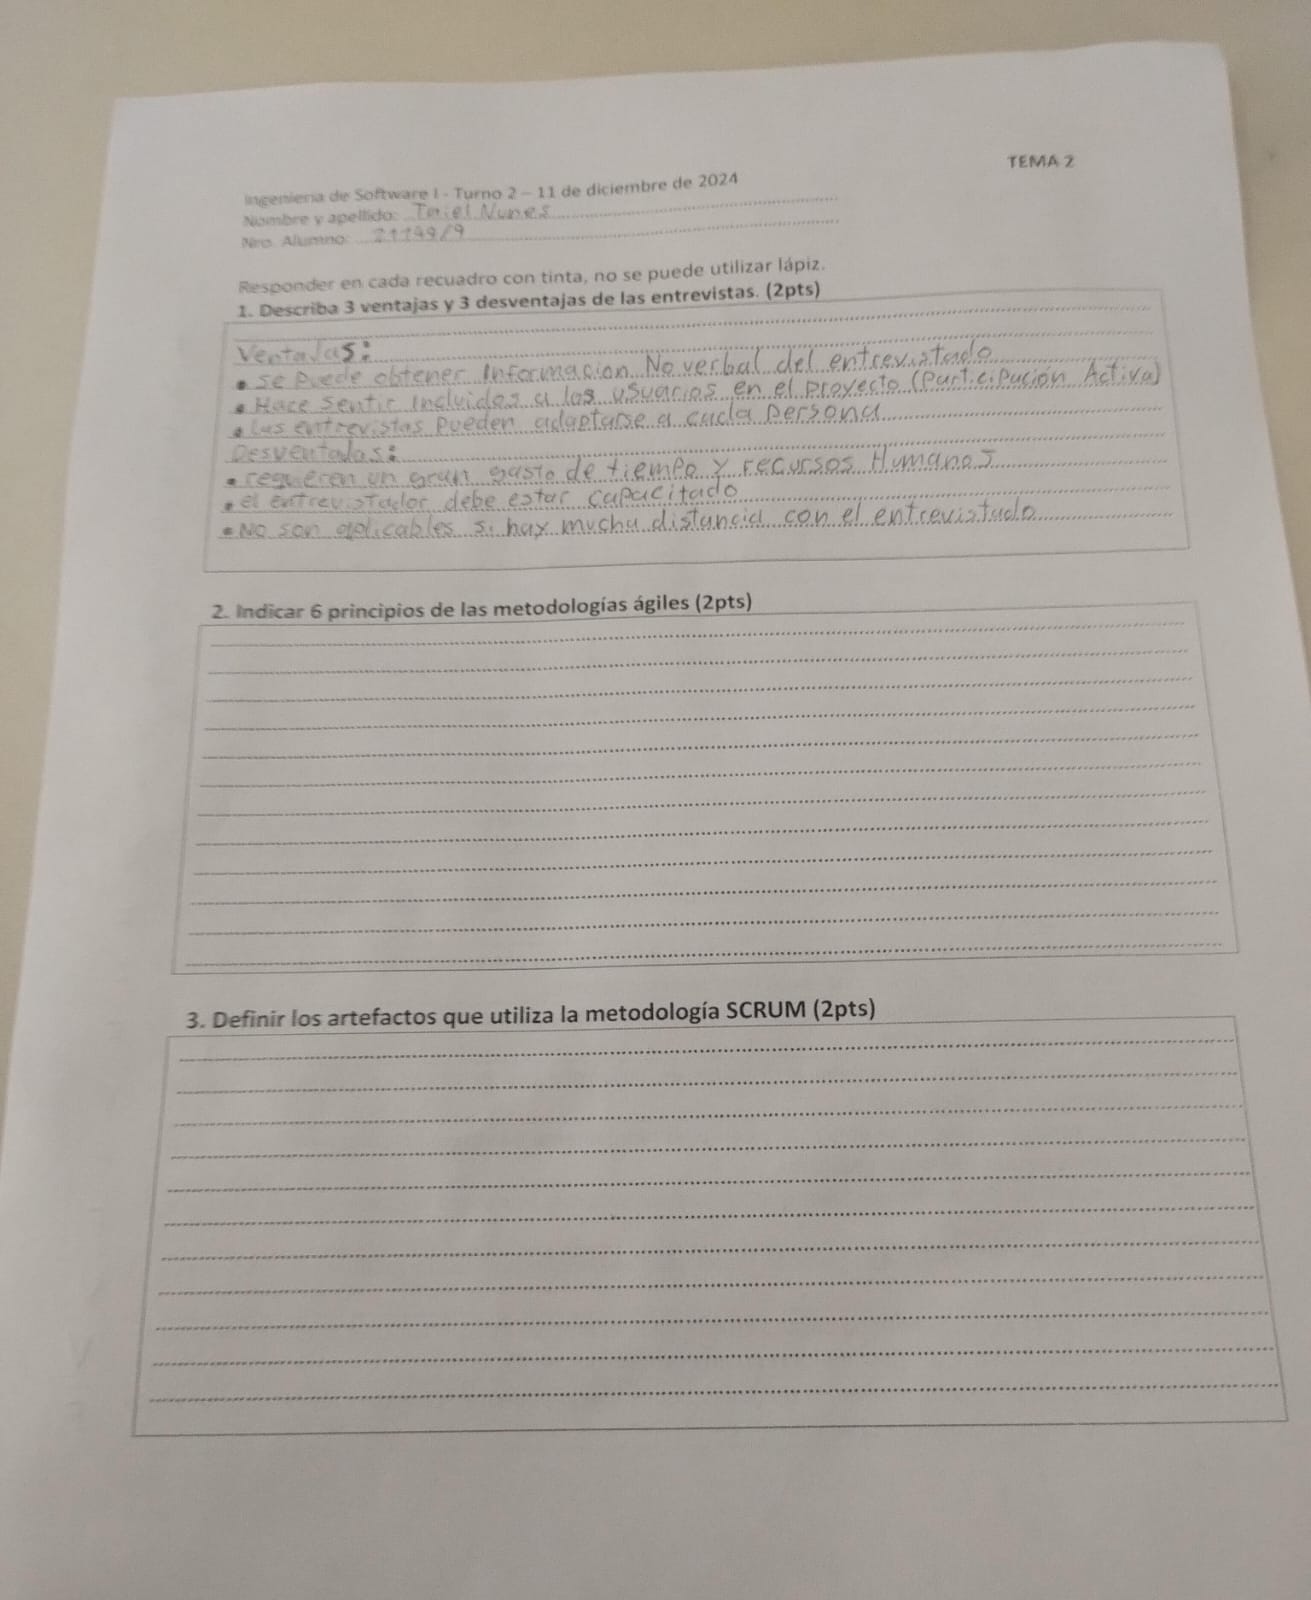 TEMA 2
Ingeniería de Software I - Turno 2 – 11 de diciembre de 2024
Nombre y apellido: Taiel Nunes
Nro. Alumno: 21199/9
Responder en cada recuadro con tinta, no se puede utilizar lápiz.
1. Describa 3 ventajas y 3 desventajas de las entrevistas. (2pts)
Ventajas:
• se puede obtener Informacion No verbal del entrevistado
• Hace sentir Incluidos a los usuarios en el proyecto (Participación Activa)
• las entrevistas pueden adaptarse a cada persona
Desventajas:
• requieren un gran gasto de tiempo y recursos Humanos
• el entrevistador debe estar capacitado
• No son aplicables si hay mucha distancia con el entrevistado
2. Indicar 6 principios de las metodologías ágiles (2pts)
3. Definir los artefactos que utiliza la metodología SCRUM (2pts)